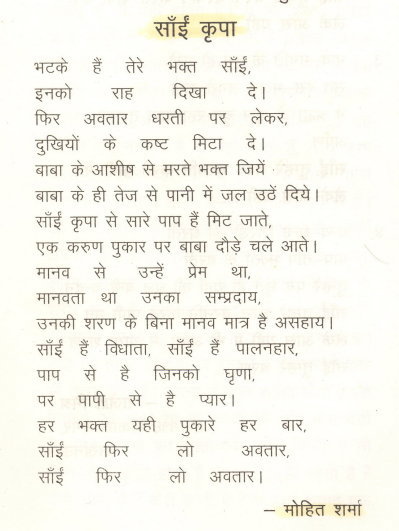 साँईं कृपा
भटके हैं तेरे भक्त साँईं,
इनको राह दिखा दे।
फिर अवतार धरती पर लेकर,
दुखियों के कष्ट मिटा दे।
बाबा के आशीष से मरते भक्त जियें
बाबा के ही तेज से पानी में जल उठें दिये।
साँईं कृपा से सारे पाप हैं मिट जाते,
एक करुण पुकार पर बाबा दौड़े चले आते।
मानव से उन्हें प्रेम था,
मानवता था उनका सम्प्रदाय,
उनकी शरण के बिना मानव मात्र है असहाय।
साँईं हैं विधाता, साँईं हैं पालनहार,
पाप से है जिनको घृणा,
पर पापी से है प्यार।
हर भक्त यही पुकारे हर बार,
साँईं फिर लो अवतार,
साँईं फिर लो अवतार।
– मोहित शर्मा